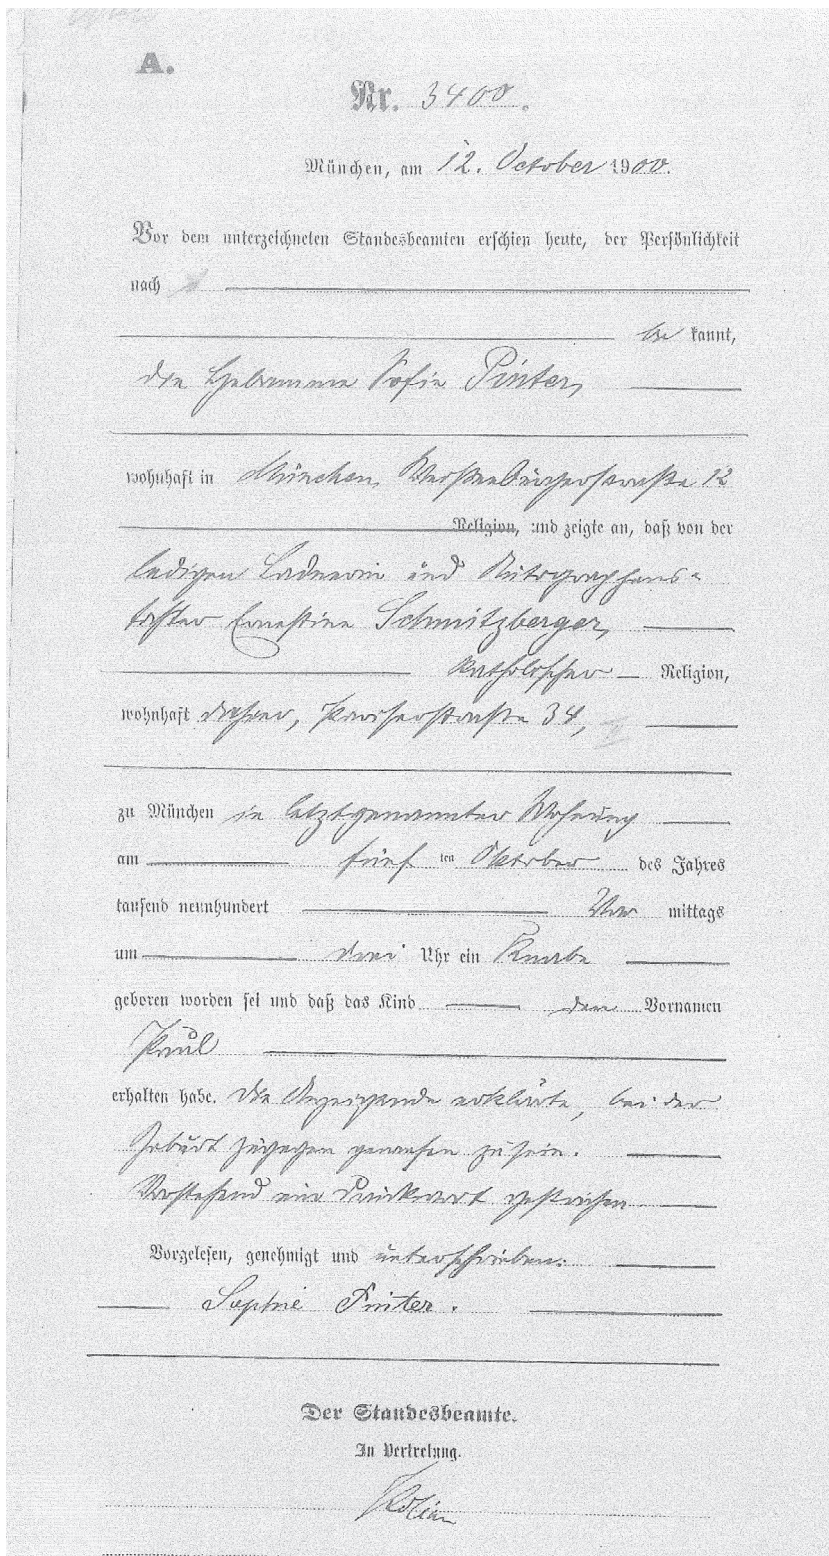 A.
Nr. 3400.
München, am 12. October 1900.
Vor dem unterzeichneten Standesbeamten erschien heute, der Persönlichkeit
nach
be kannt,
die Hebamme Sofie Pinter,
wohnhaft in München, Weißenburgerstraße 12
Religion, und zeigte an, daß von der
ledigen Ladnerin und
tochter Ernestine Schmitzberger,
katholischer Religion,
wohnhaft dahier, Pariserstraße 34,
zu München in letztgenannter Wohnung
am fünf ten Oktober des Jahres
tausend neunhundert Vor mittags
um drei Uhr ein Knabe
geboren worden sei und daß das Kind den Vornamen
Paul
erhalten habe. Die Anzeigende erklärte, bei der
Geburt zugegen gewesen zu sein.
Vorstehend ein Druckwort gestrichen
Vorgelesen, genehmigt und unterschrieben:
Sophie Pinter.
Der Standesbeamte.
In Vertretung.